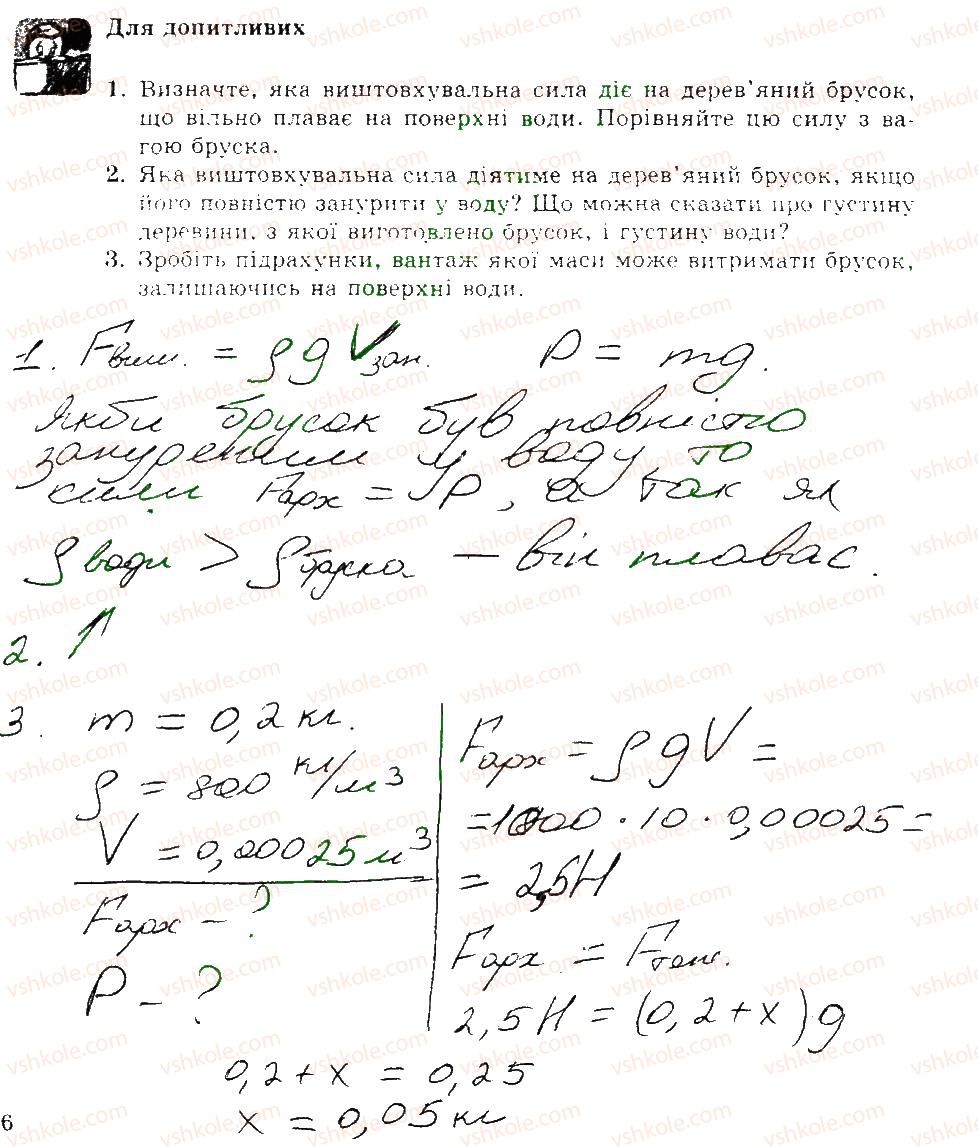 Для допитливих
1. Визначте, яка виштовхувальна сила діє на дерев'яний брусок,
що вільно плаває на поверхні води. Порівняйте цю силу з ва-
гою бруска.
2. Яка виштовхувальна сила діятиме на дерев'яний брусок, якщо
його повністю занурити у воду? Що можна сказати про густину
деревини, з якої виготовлено брусок, і густину води?
3. Зробіть підрахунки, вантаж якої маси може витримати брусок,
залишаючись на поверхні води.
1. Fвиш. = ρgVзан. P = mg.
Якби брусок був повністю
зануреним у воду, то
сили Fарх = P, а так як
ρ води > ρ бруска — він плаває.
2. ↑
3. m = 0,2 кг.
ρ = 800 кг/м³
V = 0,00025 м³
Fарх – ?
P – ?
Fарх = ρgV =
=1000 · 10 · 0,00025 =
= 2,5Н
Fарх = Fтяж.
2,5Н = (0,2+x)g
0,2+x = 0,25
x = 0,05 кг
6
vshkole.com